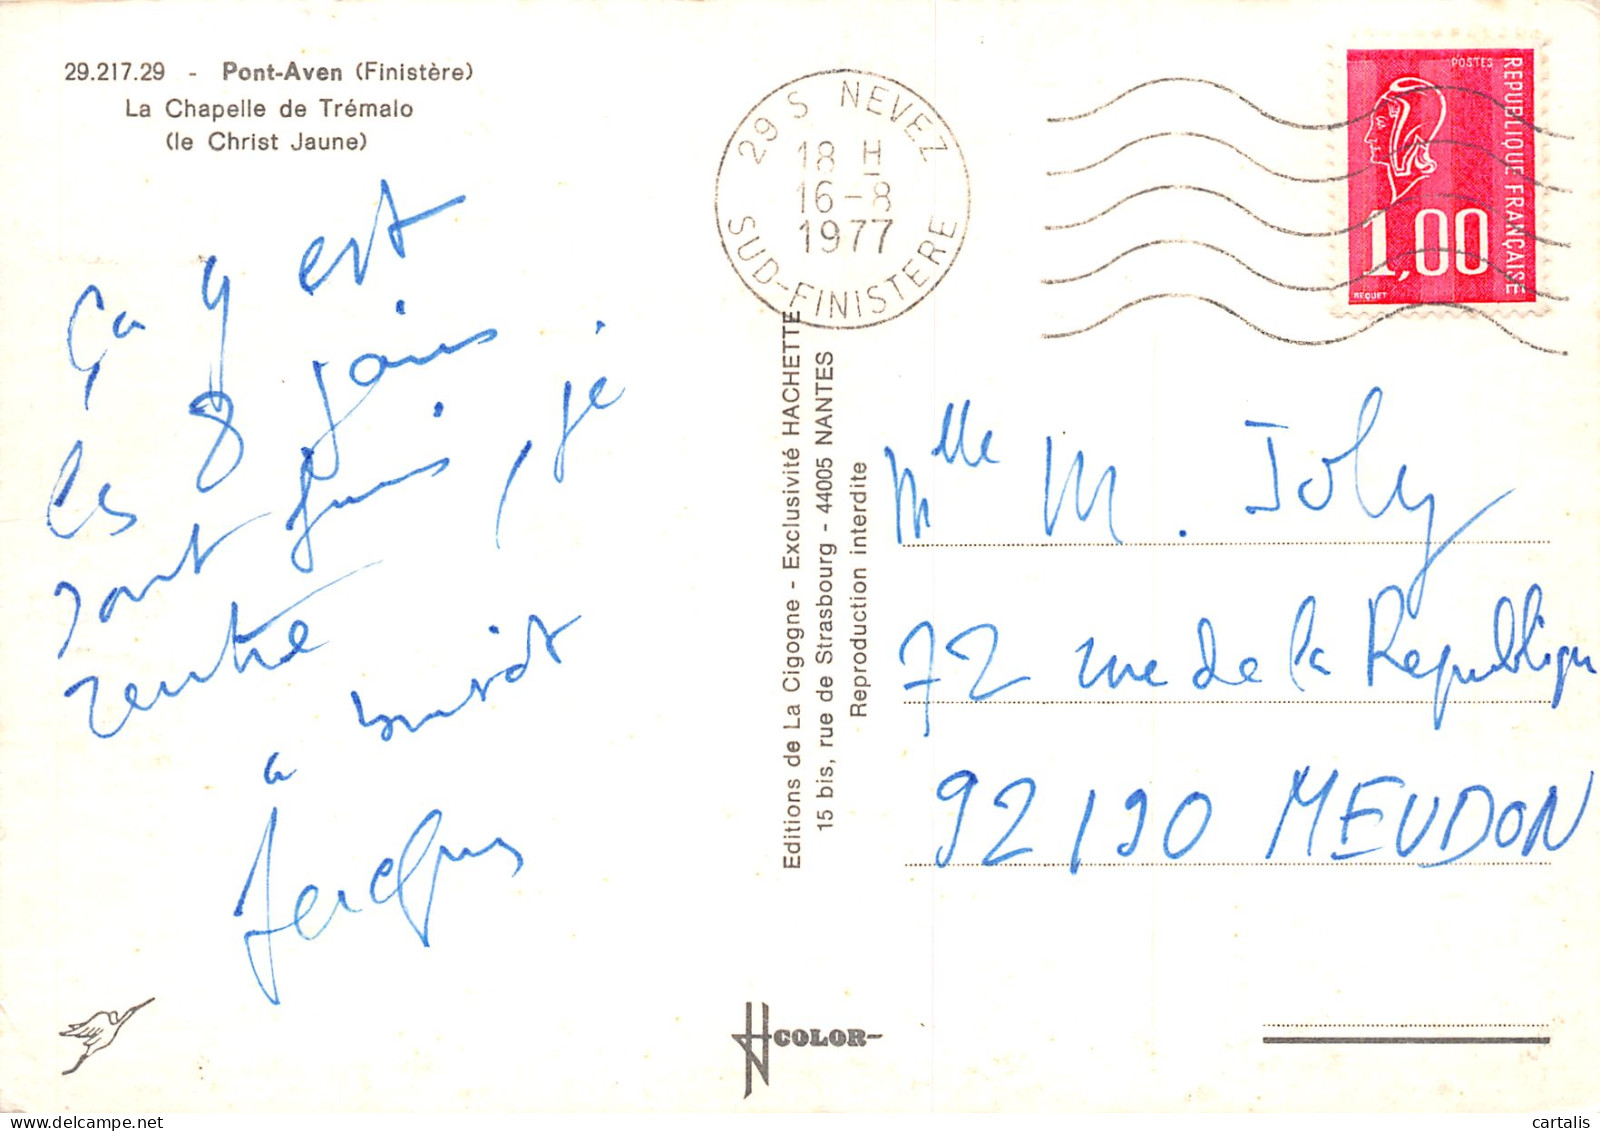 29.217.29 - Pont-Aven (Finistère)
La Chapelle de Trémalo
(le Christ Jaune)
Ça y est
les 8 jours
sont finis, je
rentre
à bientôt
Jacques
Editions de La Cigogne - Exclusivité HACHETTE
15 bis, rue de Strasbourg - 44005 NANTES
Reproduction interdite
HCOLOR
29 S NEVEZ
18 H
16-8
1977
SUD-FINISTERE
POSTES
REPUBLIQUE FRANÇAISE
1,00
BEQUET
Mlle M. Joly
72 rue de la Republique
92190 MEUDON
cartalis